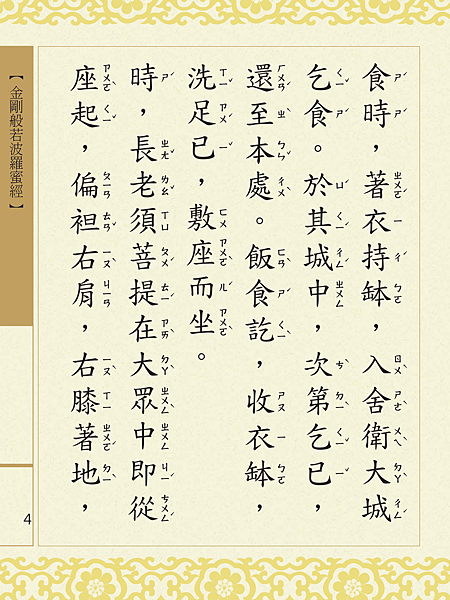 食時，著衣持缽，入舍衛大城
乞食。於其城中，次第乞已，
還至本處。飯食訖，收衣缽，
洗足已，敷座而坐。
時，長老須菩提在大眾中即從
座起，偏袒右肩，右膝著地，
【金剛般若波羅蜜經】
4